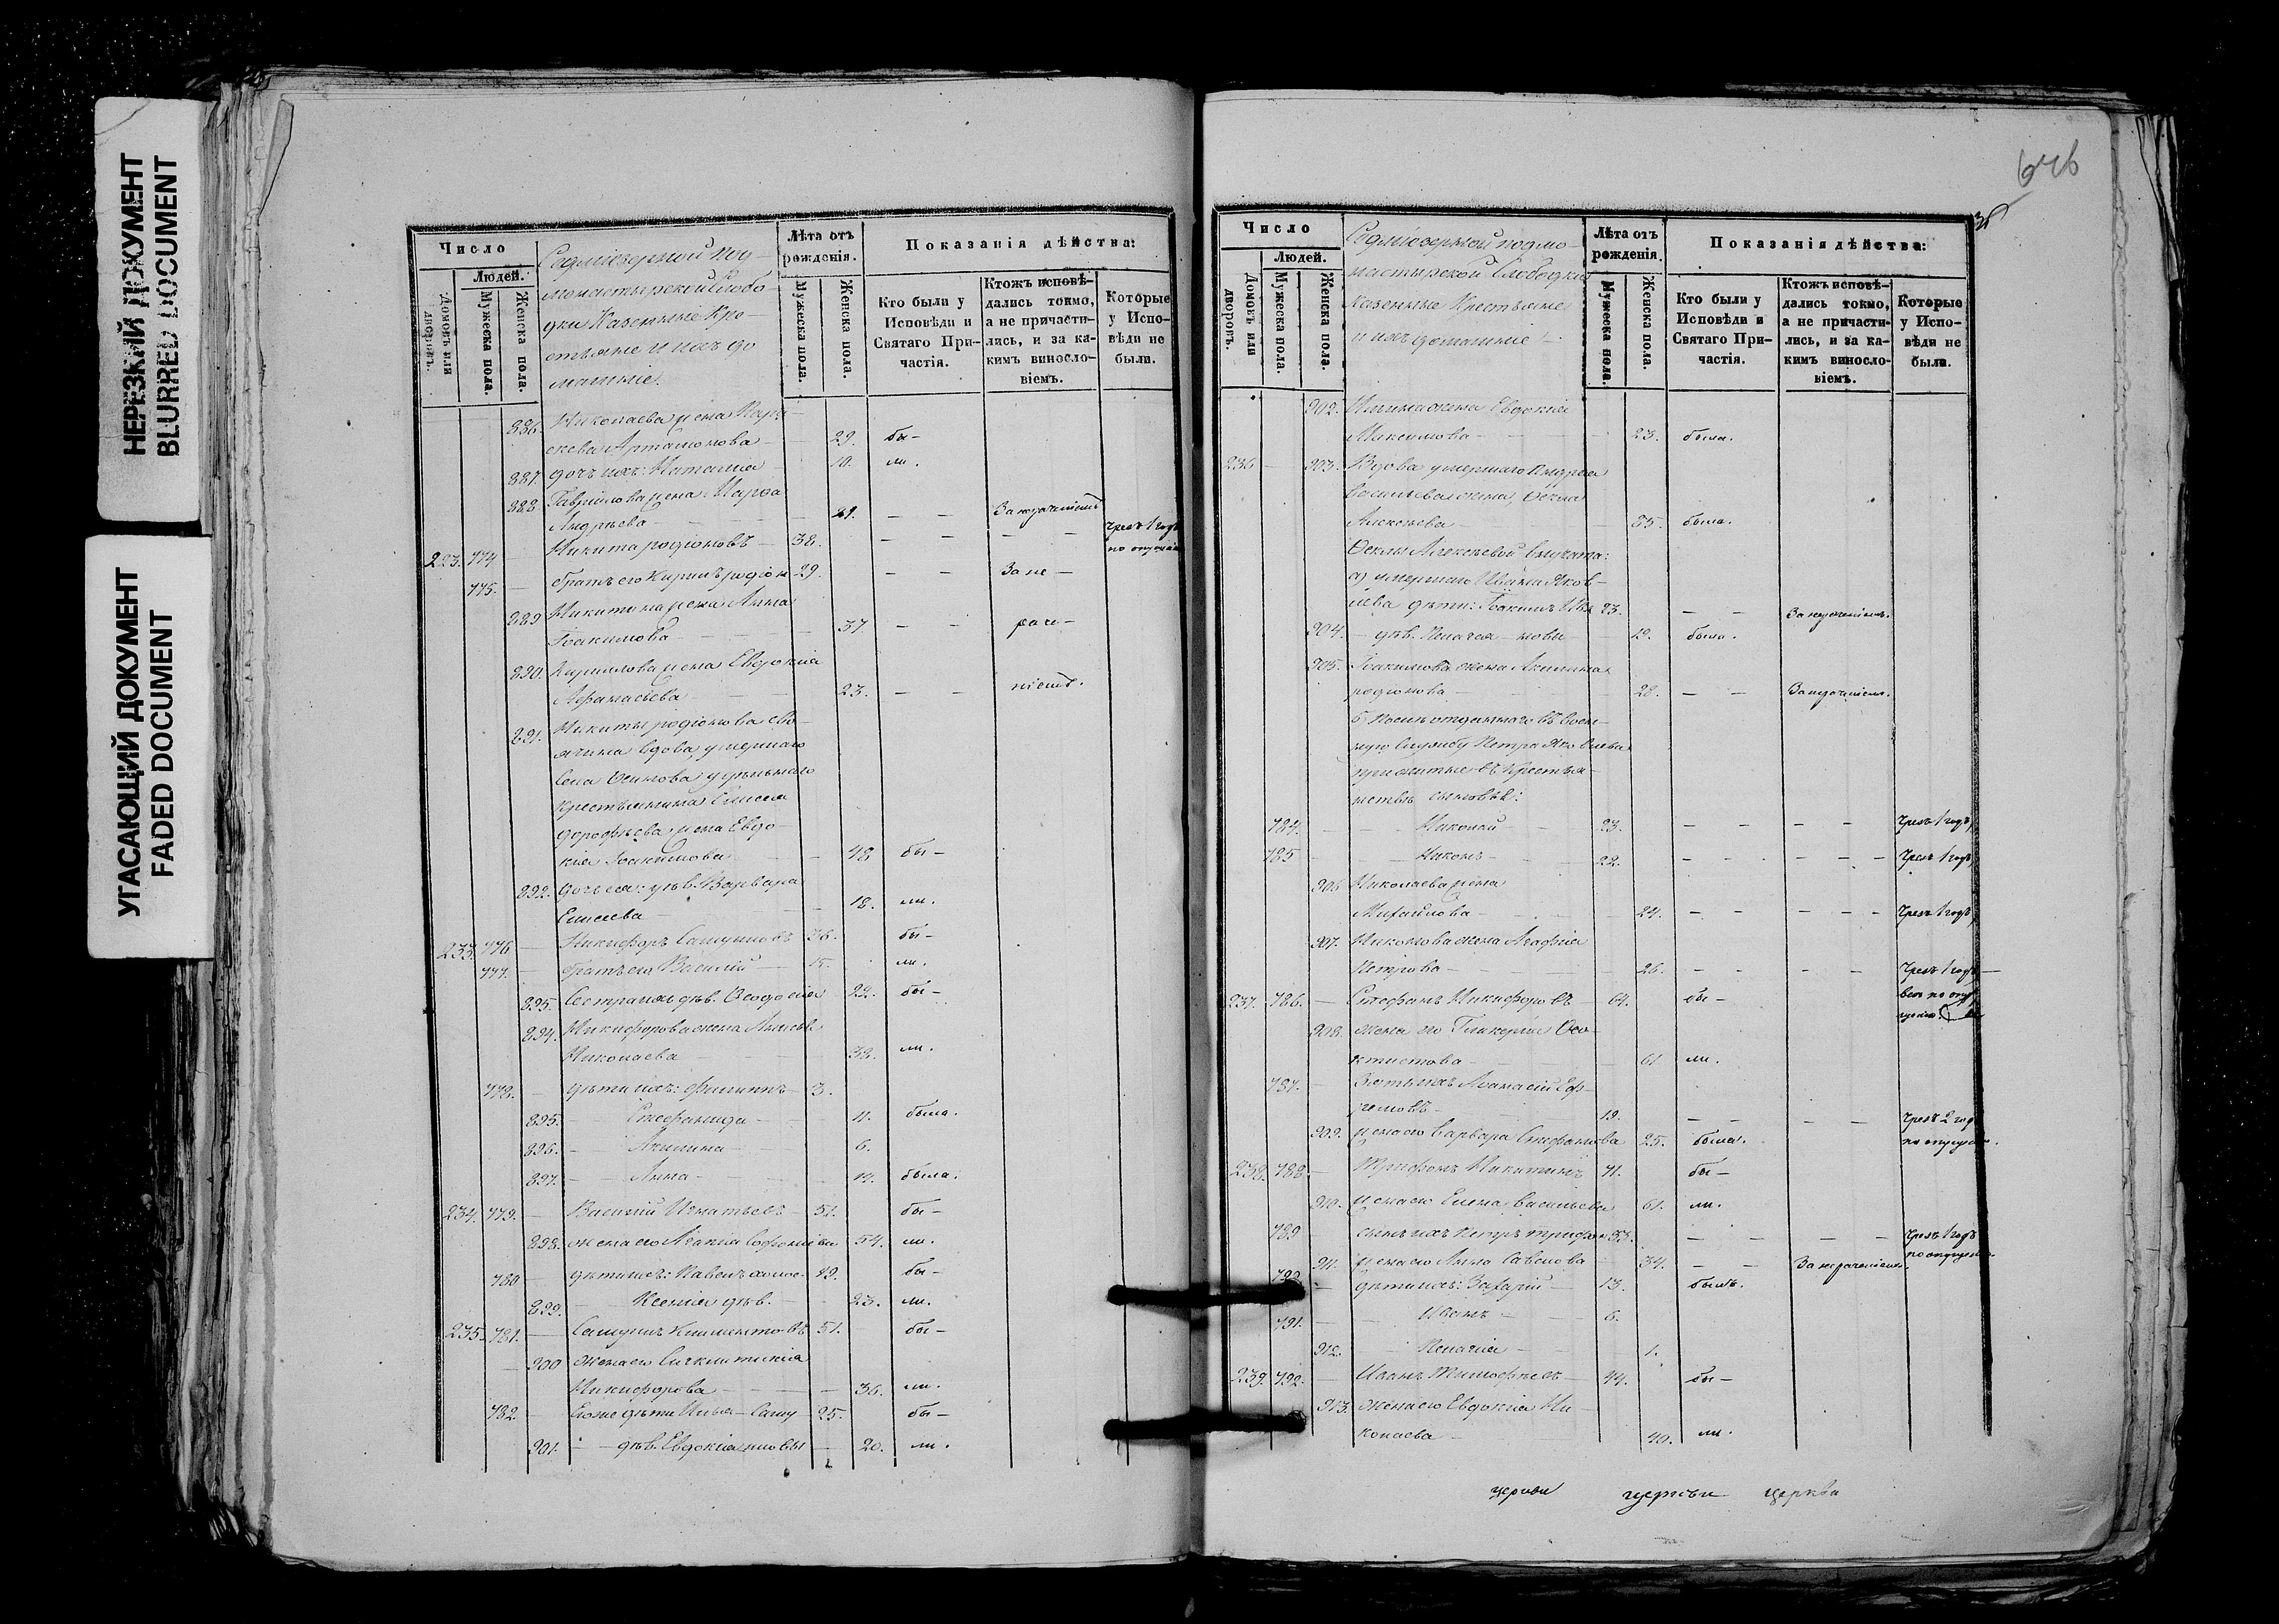 НЕРЕЗКИЙ ДОКУМЕНТ
BLURRED DOCUMENT
УГАСАЮЩИЙ ДОКУМЕНТ
FADED DOCUMENT
Число
Людей.
Домовъ или дворовъ.
Мужеска пола.
Женска пола.
Седміезерной под-
монастырской Слобо-
дки Казенные Кре-
стьяне и ихъ до
машніе.
Лѣта отъ рожденія.
Мужеска пола.
Женска пола.
Показанія дѣйства:
Кто были у Исповѣди и Святаго Причастія.
Ктожъ исповѣдались токмо, а не причастились, и за какимъ винословіемъ.
Которые у Исповѣди не были.
886. Николаева жена Пара-
скева Артамонова 29. бы-
887. дочь ихъ: Наталія 10. ла.
888 Гаврилова жена Марѳа
Андреева 49. За нраченіемъ
774 Никита родіоновъ 38. чрезъ 1 годъ
775. братъ его Кирилъ родіон 29. За не-
889 Никитина жена Анна
Іоакимова 37 раче-
890. Кириллова жена Евдокія
Афанасьева 23. ніемъ.
891. Никиты родіонова сво-
ячина вдова умершаго
Села Осинова удѣльнаго
крестьянина Елисея
дорофѣева жена Евдо-
кія Іоакимова 48 бы-
892. дочь ея: дѣв. Варвара
Елисеева 18. ли.
233. 776 Никифоръ Самуиловъ 36. бы-
777. братъ его Василій 15. ли.
Сестра ихъ дѣв. Ѳеодосія 22. бы-
894. Никифорова жена
Николаева 32. ли.
778. дѣти ихъ: Филиппъ 3.
895. Стефанида 11. была.
896. Акилина 6.
897. Анна 14. была.
234. 779. Василій Игнатьевъ 51. бы-
898. жена его Агапія Софоніева 54. ли.
780 дѣти ихъ: Павелъ холос. 19. бы-
899. Ксенія дѣв. 23. ли.
235. 781. Самуилъ Климентовъ 51. бы-
900 жена его Сигклитикія
Никифорова 36. ли.
782. Его же дѣти Илья Саму 25. бы-
901. дѣв. Евдокія иловы 20. ли.
646
Число
Людей.
Домовъ или дворовъ.
Мужеска пола.
Женска пола.
Седміезерной подмо-
настырской Слободки
Казенные Крестьяне
и ихъ домашніе
Лѣта отъ рожденія.
Мужеска пола.
Женска пола.
Показанія дѣйства:
Кто были у Исповѣди и Святаго Причастія.
Ктожъ исповѣдались токмо, а не причастились, и за какимъ винословіемъ.
Которые у Исповѣди не были.
902. Ильина жена Евдокія
Максимова 23. была.
236 903. Вдова умершаго Андрея
Васильева жена, Ѳекла
Алексеева 85. была.
Ѳеклы Алексеевой внучата:
а) умершаго Ивана Яков-
лева дѣти: Іоакимъ Ива 23.
904. дѣв. Пелагея новы была.
905. Іоакимова жена Акилина
родіонова 28.
военную Службу Петра Яковлева
прижитые въ крестья-
нствѣ сыновья:
784. Николай 23. Чрезъ 1 годъ,
785 Никонъ 22. Чрезъ 1 годъ,
906 Николаева жена
Михайлова 24. Чрезъ 1 годъ
907. Никонова жена Агафія
Петрова 26. Чрезъ 1 годъ
237. 786. Стефанъ Никифоровъ 64. бы-
908. жена его Гликерія Ѳео-
ктистова 61 ли.
787. Зять ихъ Аѳанасій Еф-
ремовъ 19. Чрезъ 2 год
909. жена его Варвара Стефанова 25. была.
238. 788. Трифонъ Никитинъ 71. бы-
910. жена его Елена Васильева 61. ли.
789 сынъ ихъ Петръ трифон 33. Чрезъ 1 годъ
911. жена его Анна Савелова 34.
790 дѣти ихъ: Захарій 13. былъ.
791. Иванъ 6.
912. Пелагія 1.
239. 792. Иванъ Тимофѣевъ 44. бы-
913. жена его Евдокія Ни-
колаева 40. ли.
церкви церкви церкви